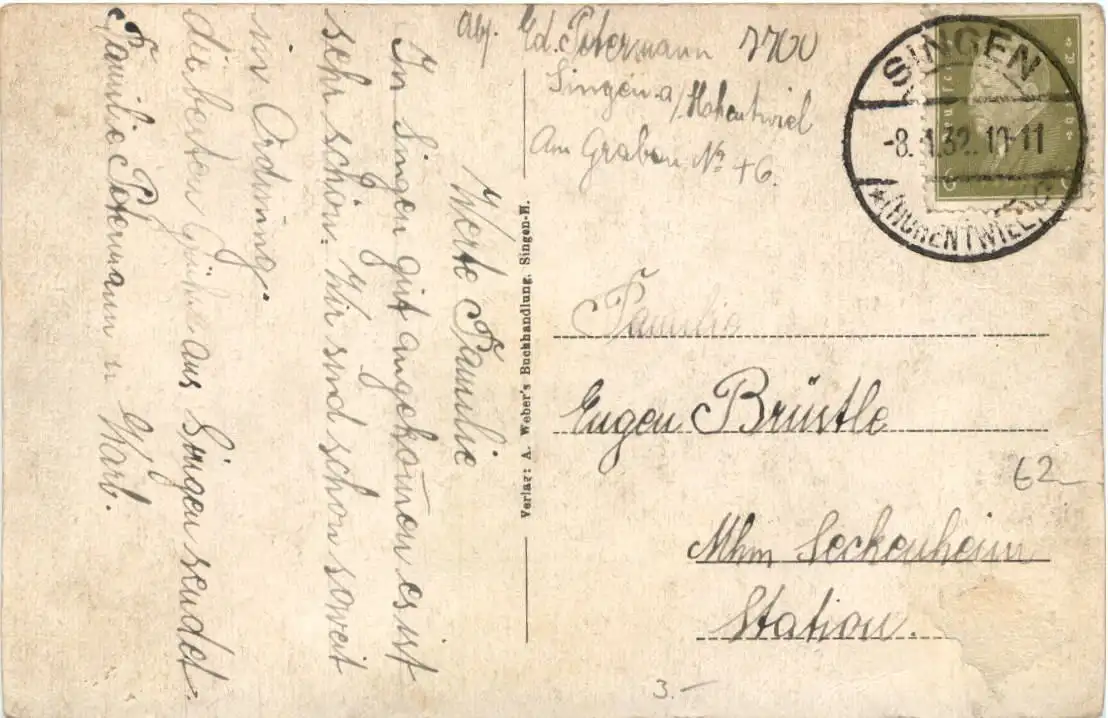 Abs. Ed. Petermann 7700
Singen a/Hohentwiel
Am Graben № 46.
Werte Familie
In Singen gut angekom̄en es ist
sehr schön. Wir sind schon soweit
in Ordnung.
die besten Grüße aus Singen sendet
Familie Petermann u Karb.
Verlag: A. Weber's Buchhandlung, Singen-H.
SINGEN
-8.1.32. 10-11
(HOHENTWIEL)
Familie
Eugen Brüstle
Mhm Seckenheim
Station.
62
3.-